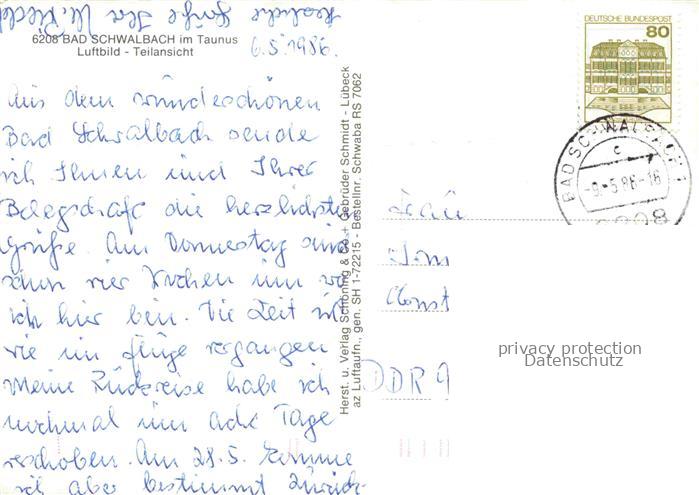 Herzliche Grüße Ihr
6208 BAD SCHWALBACH im Taunus
Luftbild - Teilansicht
6.5.1986.
Aus dem wunderschönen
Bad Schwalbach sende
ich Ihnen und Ihrer
die herzlichsten
Grüße. Am Donnerstag sind
schon vier Wochen um
ich hier bin. Die Zeit ist
wie im Fluge vergangen
Meine Rückreise habe ich
nochmal um acht Tage
verschoben. Am 28.5. komme
ich aber bestimmt zurück-
Herst. u. Verlag Schöning & Co.+ Gebrüder Schmidt - Lübeck
az Luftaufn., gen. SH 1-72215 - Bestellnr. Schwaba RS 7062
DEUTSCHE BUNDESPOST
80
BAD SCHWALBACH 1
c
-9.-5.86-18
6208
Frau
DDR 9
privacy protection
Datenschutz